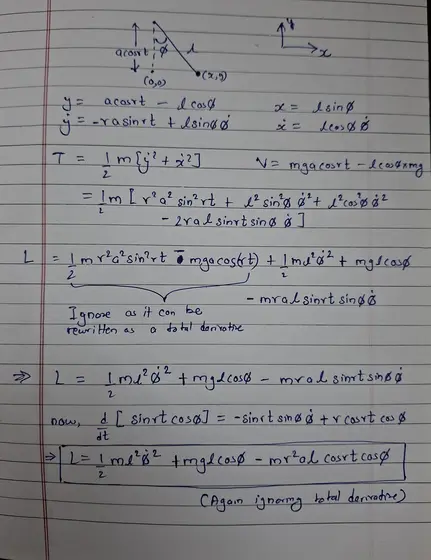 acosrt
ϕ
l
(0,0)
(x,y)
y
x
y = acosrt − lcosϕ x = lsinϕ
ẏ = -rasinrt + lsinϕ ϕ̇ ẋ = lcosϕ ϕ̇
T = 1/2 m [ẏ² + ẋ²] V = mgacosrt − lcosϕ mg
= 1/2 m [ r²a² sin²rt + l² sin²ϕ ϕ̇² + l²cos²ϕ ϕ̇²
− 2ral sinrt sinϕ ϕ̇ ]
L = 1/2 m r²a² sin²rt − mgacos(rt) + 1/2 ml²ϕ̇² + mglcosϕ
− mral sinrt sinϕ ϕ̇
Ignore as it can be
rewritten as a total derivative
⇒ L = 1/2 ml²ϕ̇² + mglcosϕ − mral sinrt sinϕ ϕ̇
now, d/dt [ sinrt cosϕ ] = −sinrt sinϕ ϕ̇ + r cosrt cosϕ
⇒ L = 1/2 ml²ϕ̇² + mglcosϕ − mr²al cosrt cosϕ
(Again ignoring total derivative)